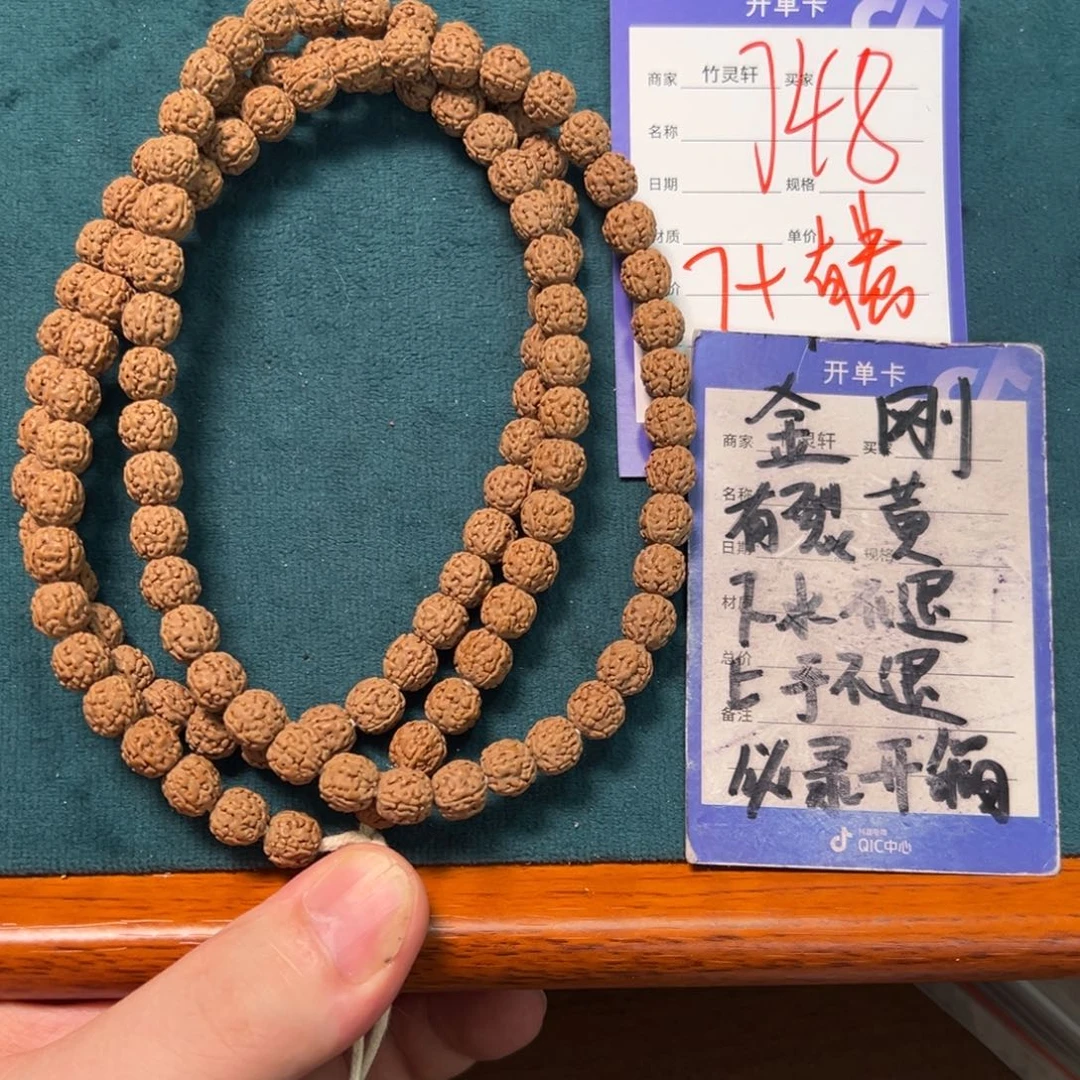 开单卡
商家 竹灵轩 买家
J48
名称
日期 规格
材质 单价
7+ 有黄
价
开单卡
金刚
商家 灵轩 买
名称
有裂 黄
日期 规格
下水不退
材
总价
上手不退
备注
必录开箱
抖音电商
QIC中心